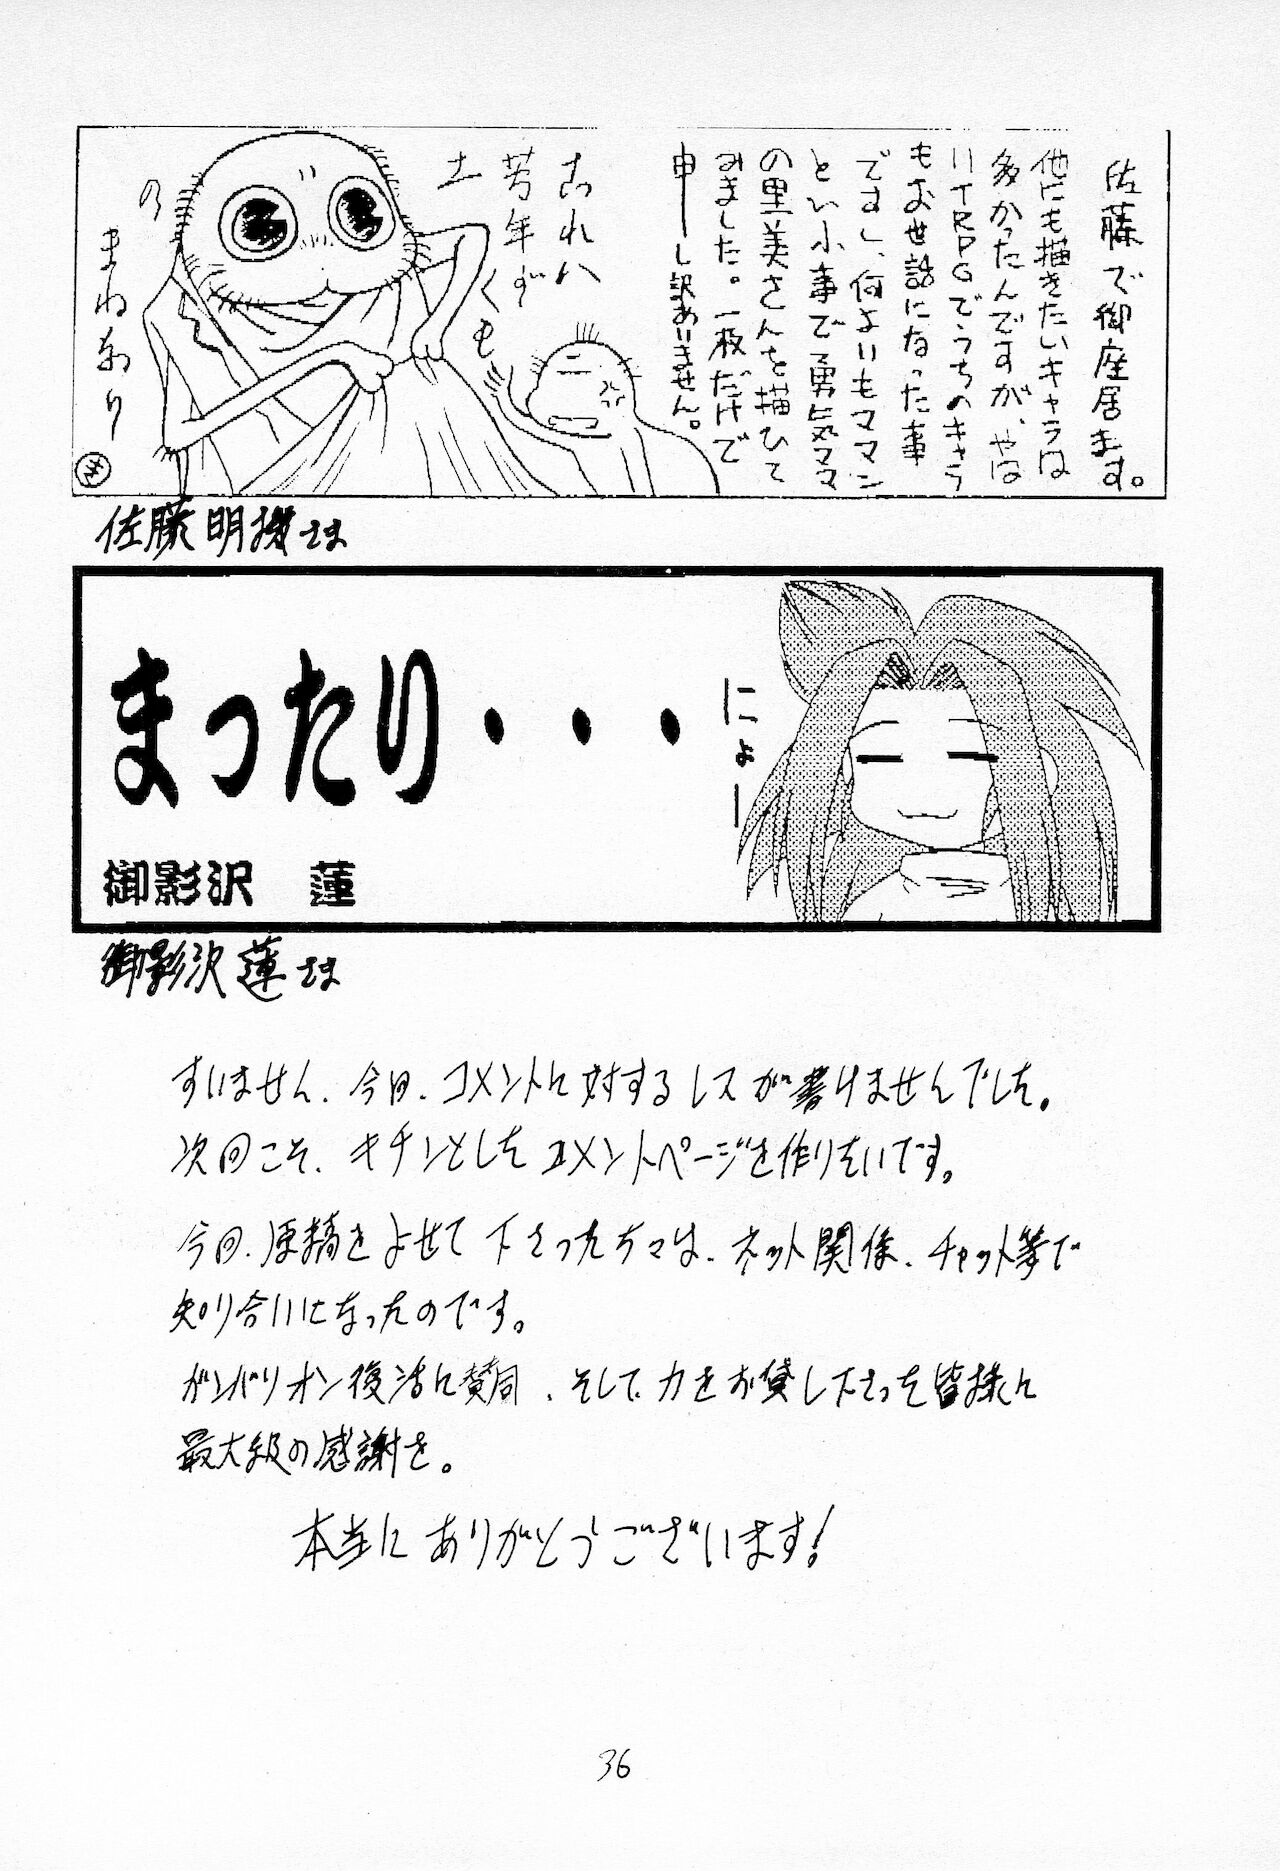 佐藤で御座居ます。
他にも描きたいキャラは
多かったんですが、やは
りTRPGでうちのキャラ
もお世話になった事
ですし、何よりもママン
とい小事で勇気ママ
の里美さんを描ひて
みました。一枚だけで
申ーし訳ありません。
これハ
芳年ずくも
土
の
まねあり
佐藤明機さま
まったり・・・
にょー
御影沢 蓮
御影沢蓮さま
すいません、今回、コメントに対するレスが書けませんでした。
次回こそ、キチンとしたコメントページを作りたいです。
今回、原稿をよせて下さった方々は、ネット関係、チャット等で
知り合いになったのです。
ガンバリオン復活に賛同、そして、力をお貸し下さった皆様に
最大級の感謝を。
本当にありがとうございます!
36